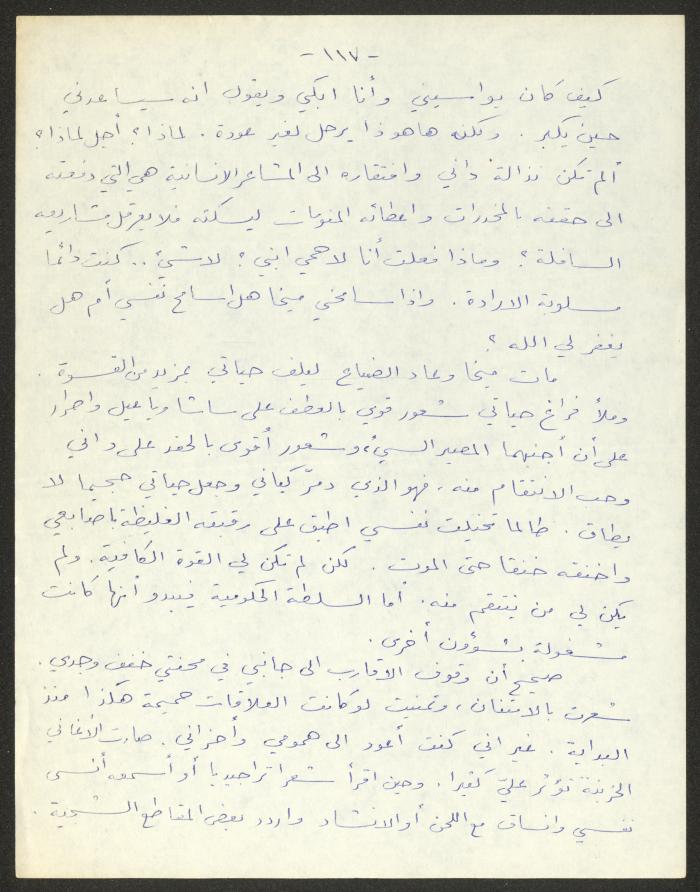 -١١٧-
كيف كان يواسيني وأنا ابكي ويقول انه سيساعدني
حين يكبر. ولكنه هاهو ذا يرحل لغير عودة. لماذا؟ أجل لماذا؟
ألم تكن نذالة داني وافتقاره الى المشاعر الانسانية هي التي دفعته
الى حقنه بالمخدرات واعطائه المنومات ليسكته فلا يعرقل مشاريعه
السافلة؟ وماذا فعلت أنا لاحمي ابني؟ لاشيْ.. كنت دائما
مسلوبة الارادة. واذا سامحني ميخا هل اسامح نفسي أم هل
يغفر لي الله؟
مات ميخا وعاد الضياع ليلف حياتي بمزيد من القسوة.
وملأ فراغ حياتي شعور قوي بالعطف على ساشا وياعيل واصرار
على أن أجنبهما المصير السيء، وشعور أقوى بالحقد على داني
وحب الانتقام منه، فهو الذي دمرّ كياني وجعل حياتي جحيما لا
يطاق. طالما تخيلت نفسي اطبق على رقبته الغليظة باصابعي
واخنقه خنقا حتى الموت. لكن لم تكن لي القوة الكافية. ولم
يكن لي من ينتقم منه. أما السلطة الحكومية فيبدو أنها كانت
مشغولة بشؤون أخرى.
صحيح أن وقوف الاقارب الى جانبي في محنتي خفف وجدي.
شعرت بالامتنان، وتمنيت لو كانت العلاقات حميمة هكذا منذ
البداية. غير اني كنت أعود الى همومي وأحزاني. صارت الأغاني
الحزينة تؤثر عليّ كثيرا. وحين اقرأ شعرا تراجيديا أو أسمعه أنسى
نفسي وانساق مع اللحن أو الانشاد واردد بعض المقاطع الشجية.